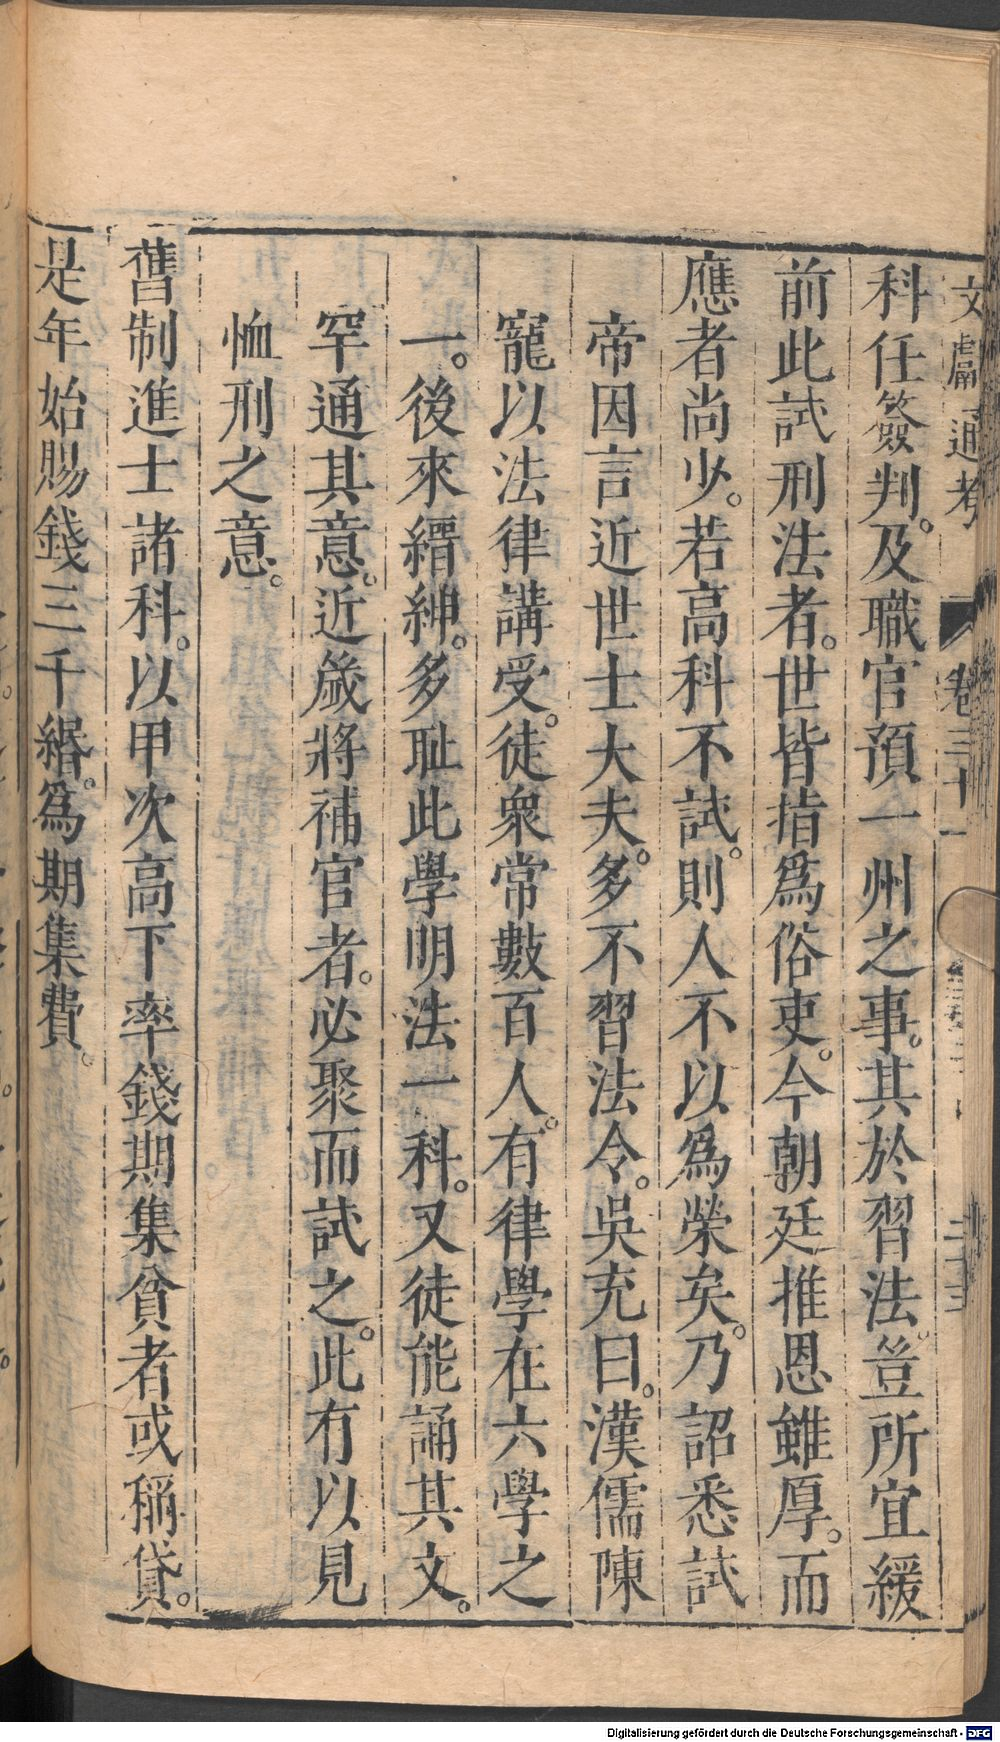 文獻通考 卷三十一 二十三
科任簽判。及職官預一州之事。其於習法。豈所宜緩
前此試刑法者。世皆指爲俗吏。今朝廷推恩雖厚。而
應者尚少。若高科不試。則人不以爲榮矣。乃詔悉試
帝因言近世士大夫。多不習法令。吳充曰。漢儒陳
寵以法律講受。徒衆常數百人。有律學在六學之
一。後來縉紳。多耻此學明法一科。又徒能誦其文。
罕通其意。近歲將補官者。必聚而試之。此有以見
恤刑之意。
舊制進士諸科。以甲次高下率錢期集貧者或稱貸。
是年始賜錢三千緡。爲期集費。
Digitalisierung gefördert durch die Deutsche Forschungsgemeinschaft - DFG